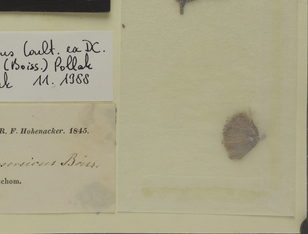 us Coult. ex DC.
(Boiss.) Pollak
ak 11. 1988
R. F. Hohenacker. 1845.
Boiss.
chom.